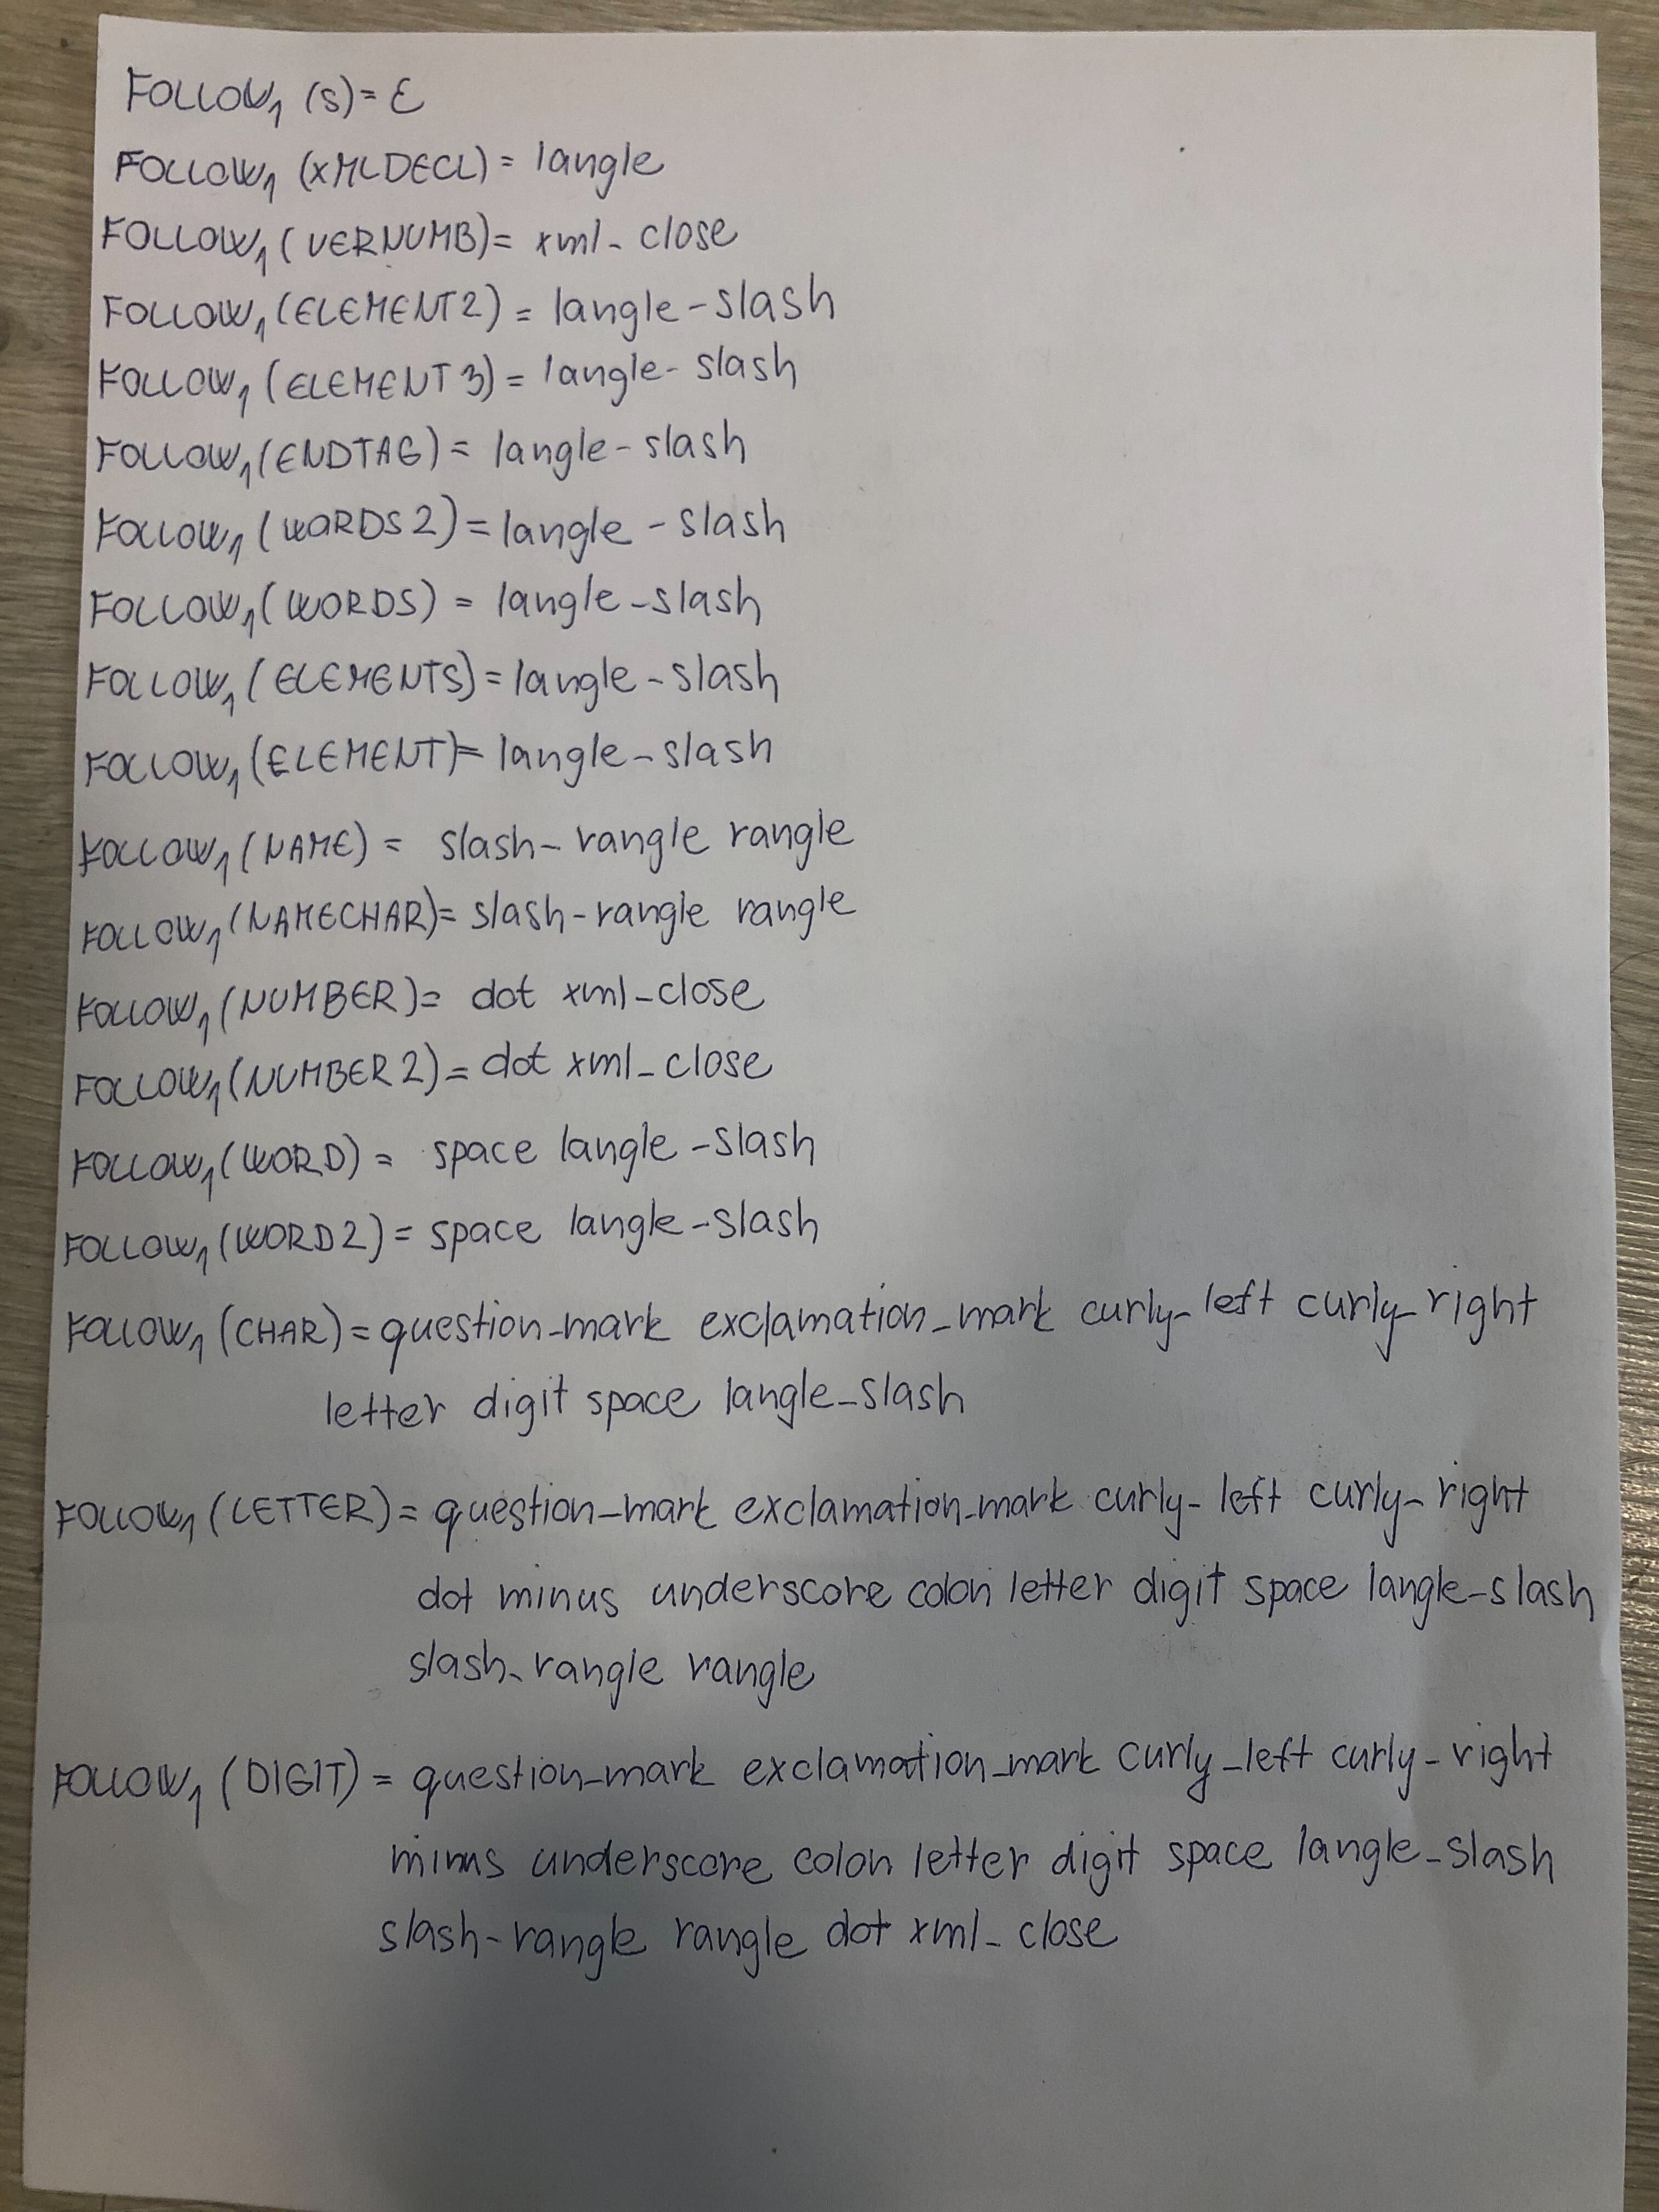 FOLLOW₁ (S) = ε
FOLLOW₁ (XMLDECL) = langle
FOLLOW₁ (VERNUMB) = xml_close
FOLLOW₁ (ELEMENT2) = langle-slash
FOLLOW₁ (ELEMENT3) = langle-slash
FOLLOW₁ (ENDTAG) = langle-slash
FOLLOW₁ (WORDS2) = langle-slash
FOLLOW₁ (WORDS) = langle-slash
FOLLOW₁ (ELEMENTS) = langle-slash
FOLLOW₁ (ELEMENT) = langle-slash
FOLLOW₁ (NAME) = slash-rangle rangle
FOLLOW₁ (NAMECHAR) = slash-rangle rangle
FOLLOW₁ (NUMBER) = dot xml_close
FOLLOW₁ (NUMBER2) = dot xml_close
FOLLOW₁ (WORD) = space langle-slash
FOLLOW₁ (WORD2) = space langle-slash
FOLLOW₁ (CHAR) = question_mark exclamation_mark curly_left curly_right
letter digit space langle_slash
FOLLOW₁ (LETTER) = question_mark exclamation_mark curly_left curly_right
dot minus underscore colon letter digit space langle-slash
slash_rangle rangle
FOLLOW₁ (DIGIT) = question_mark exclamation_mark curly_left curly_right
minus underscore colon letter digit space langle_slash
slash-rangle rangle dot xml_close